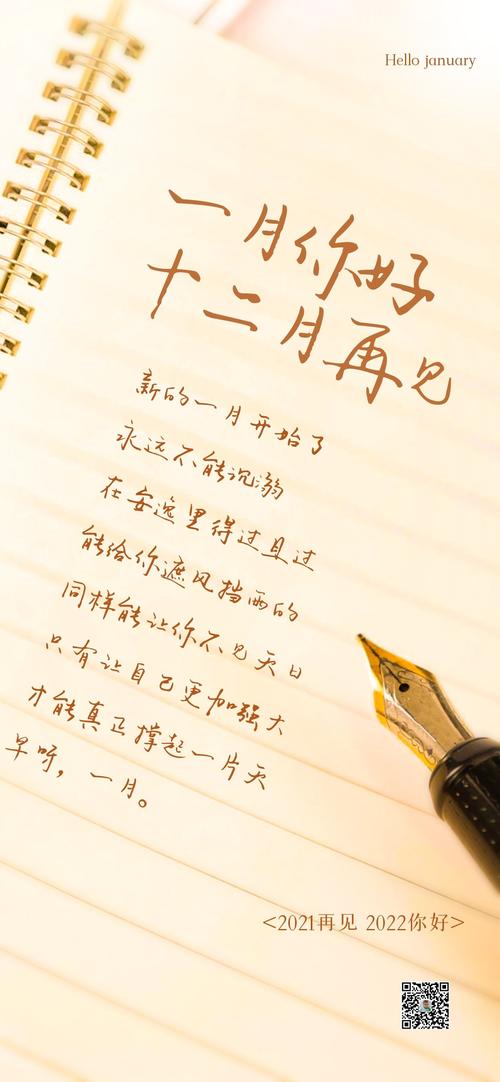 Hello january
一月你好
十二月再见
新的一月开始了
永远不能沉溺
在安逸里得过且过
能给你遮风挡雨的
同样能让你不见天日
只有让自己更加强大
才能真正撑起一片天
早呀，一月。
<2021再见 2022你好>